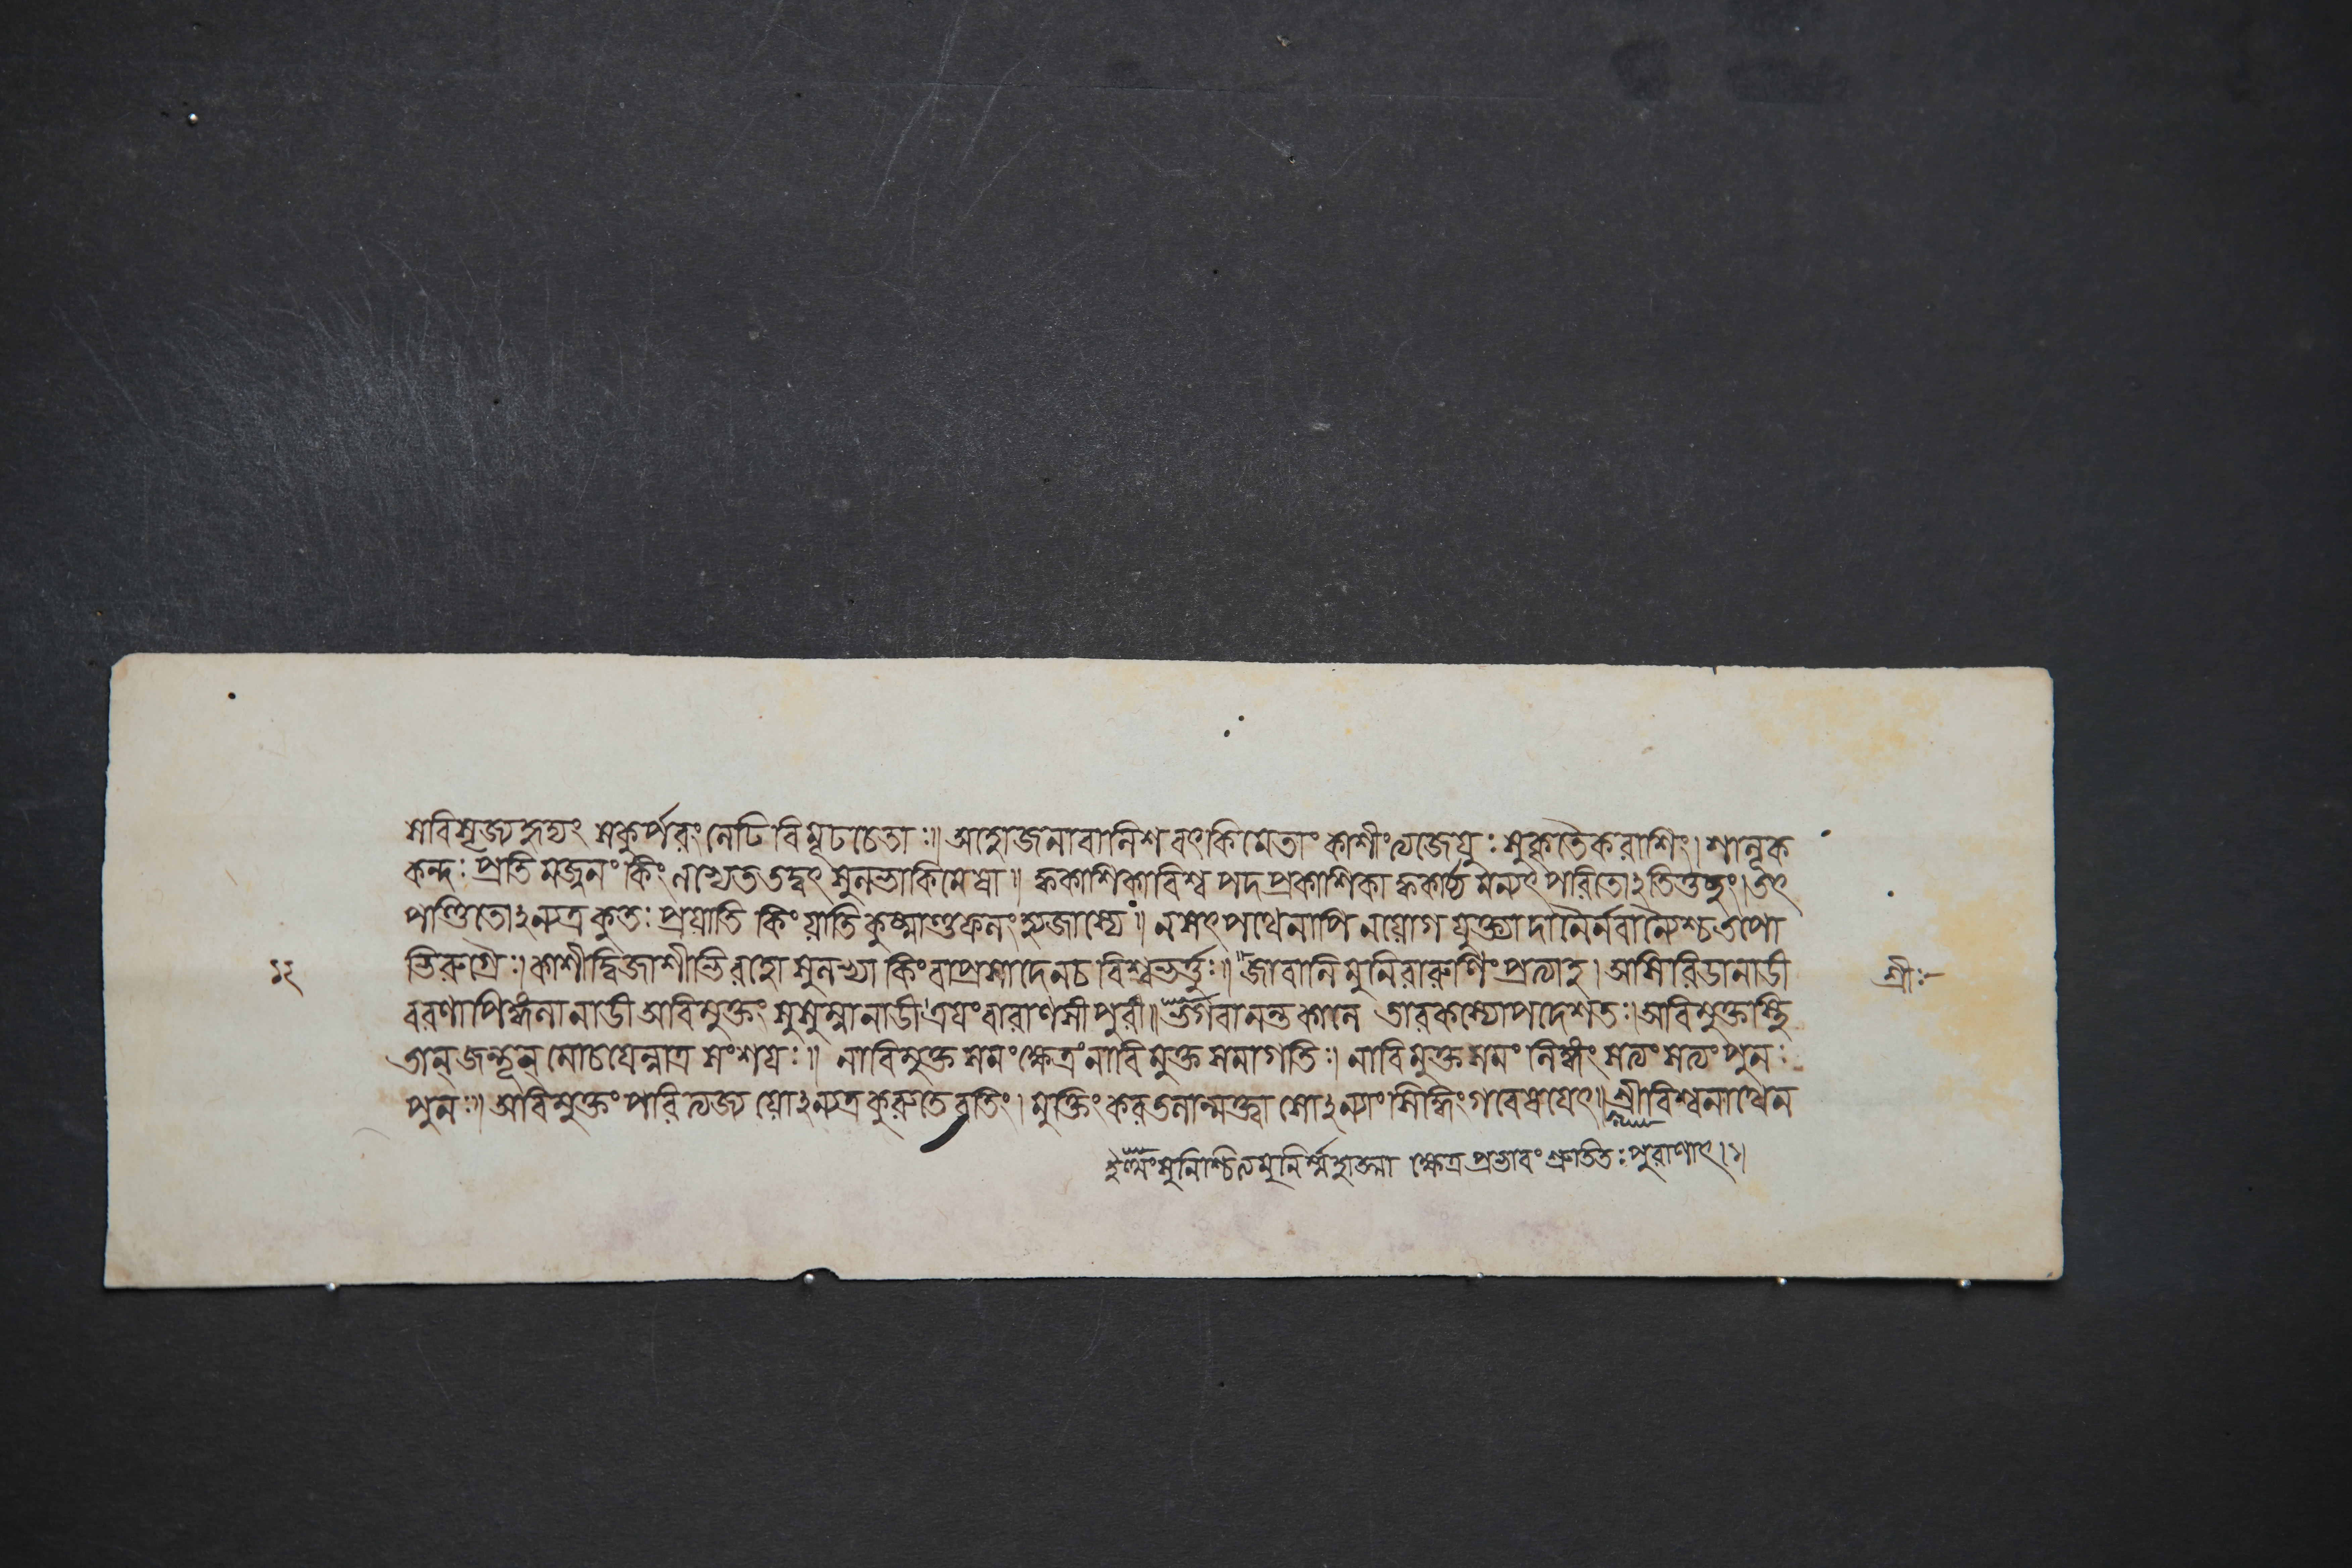 স বিসৃজ্য হৃদ্যং স কূর্পরং লেঢি বিমূঢচেতাঃ॥ অহো জনা বালিশবৎ কিমেতাং কাশীং ত্যজেযুঃ সুকৃতৈকরাশিং। শালূক
কন্দঃ প্রতিমজ্জনং কিং লভ্যেত তদ্বৎ সুলভা কিমেষা॥ ক্ব কাশিকা বিশ্বপদপ্রকাশিকা ক্ব কার্য্যমন্যৎ পরিতোঽতিদুঃখং। তৎ
পণ্ডিতোঽন্যত্র কুতঃ প্রয়াতি কিং য়াতি কুষ্মাণ্ডফলং হ্যজাস্যে॥ ন সৎপথেনাপি ন য়োগযুক্ত্যা দানৈর্ন বা নৈশ্চ তপো
ভিরুগ্রৈঃ। কাশী দ্বিজাশীর্ভিরহো সুলভ্যা কিং বা প্রসাদেন চ বিশ্বভর্ত্তুঃ॥ জাবালিমুনিরারুণিং প্রত্যাহ। অসিরিডা নাডী
১২
শ্রীঃ
বরণা পিঙ্গলা নাডী অবিমুক্তং সুষুম্না নাডী ত্রযং বারাণসী পুরী॥ ভর্গবানন্তকালে তারকস্যোপদেশতঃ। অবিমুক্তস্থি
তান্ জন্তূন্ মোচযেন্নাত্র সংশযঃ॥ নাবিমুক্তসমং ক্ষেত্রং নাবিমুক্তসমাগতিঃ। নাবিমুক্তসমং লিঙ্গং সত্যং সত্যং পুনঃ
পুনঃ॥ অবিমুক্তং পরিত্যজ্য য়োঽন্যত্র কুরুতে রতিং। মুক্তিং করতলান্মুক্ত্বা সোঽন্যাং সিদ্ধিং গবেষযেৎ॥ শ্রীবিশ্বনাথেন
ইত্থং সুনিশ্চিত্য মুনির্ম্মহাত্মা ক্ষেত্রপ্রভাবং শ্রুতিতঃ পুরাণাৎ।